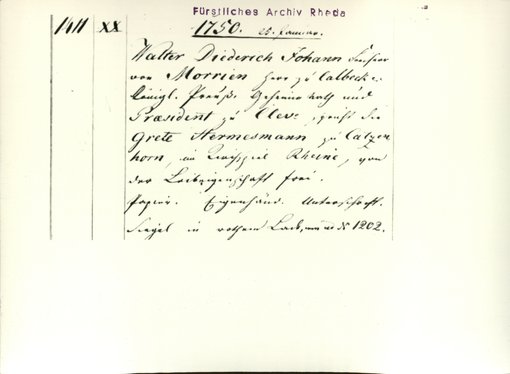 Fürstliches Archiv Rheda
1411 XX 1750. 20. Januar.
Walter Diederich Johann Freiherr
von Morrien Herr zu Calbeck
königl. Preuß. Geheimrath und
Praesident zu Cleve, spricht die
Grete Hermesmann zu Catzen
horn, im Kirchspiel Rheine, von
der Leibeigenschaft frei.
Papier. Eigenhänd. Unterschrift.
Siegel in rothem Lack, 1202.